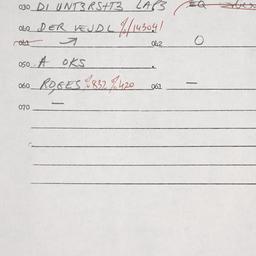 030 DI UNT3RSHT3 LAP3 EQ
040 DER VEJDL %/143041
041 062 O
050 A OKS .
060 ROBES %832 %420 061 —
070 —